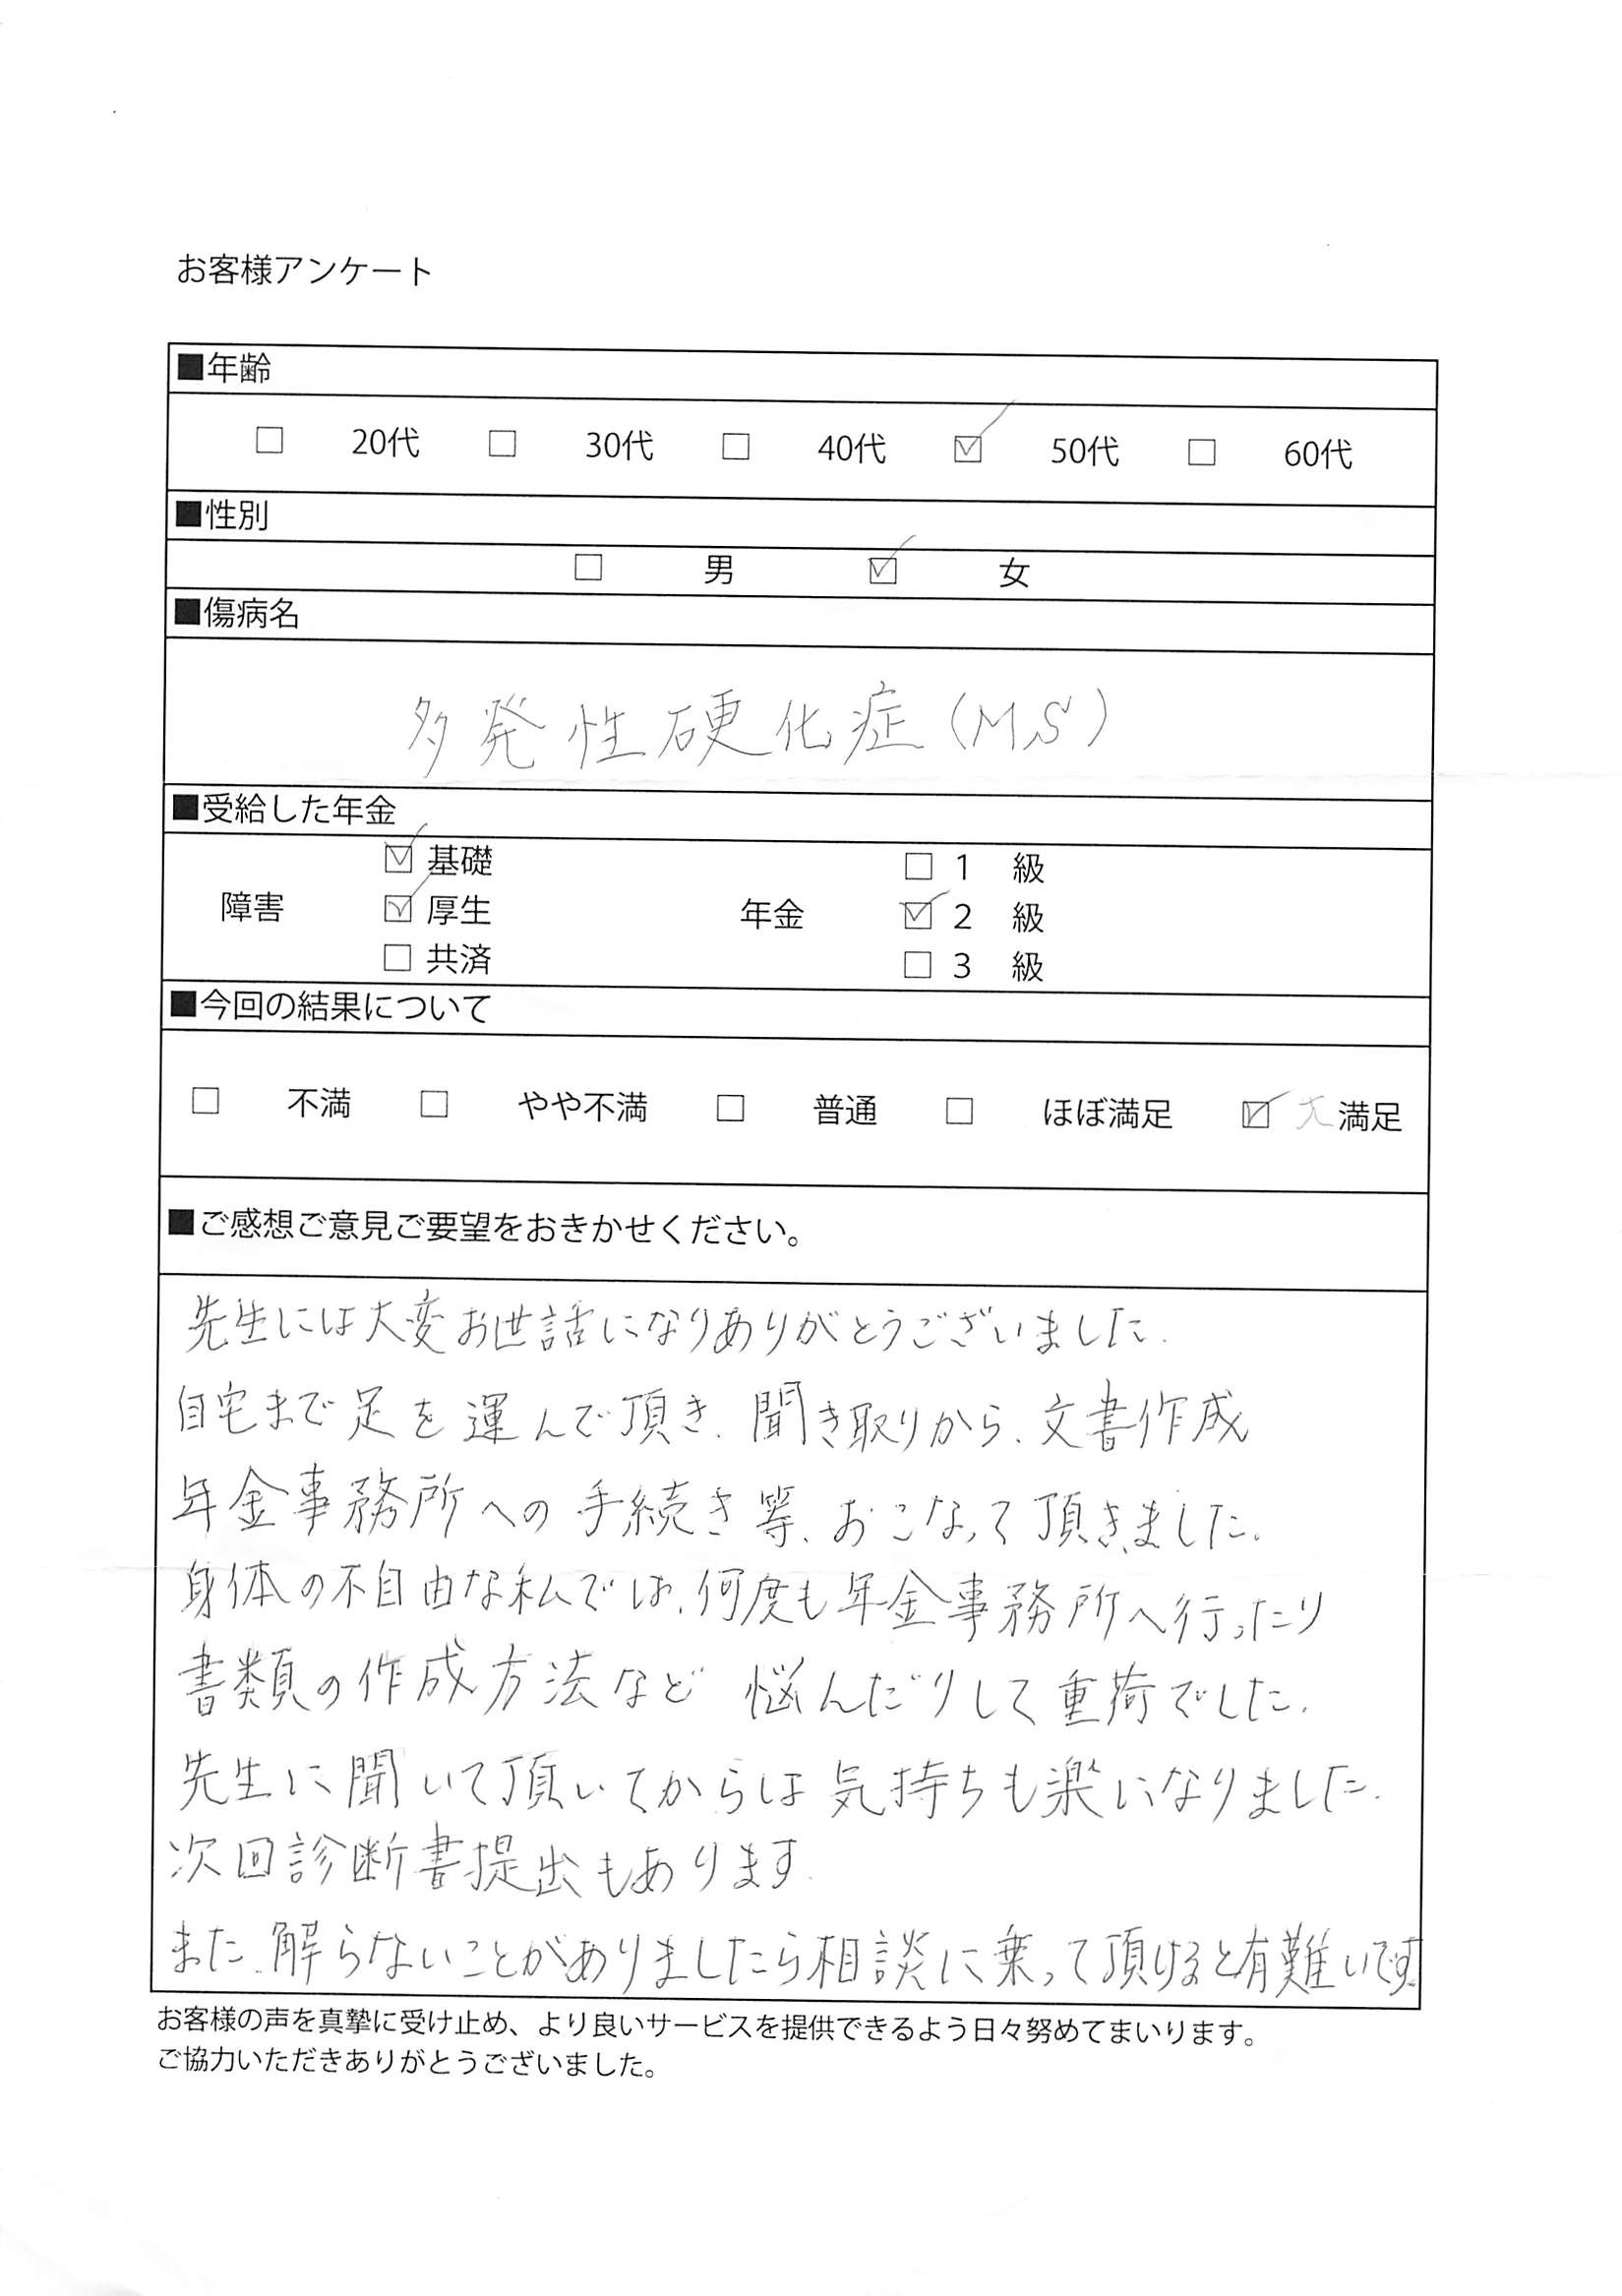 お客様アンケート
■年齢
□ 20代 □ 30代 □ 40代 ☑ 50代 □ 60代
■性別
□ 男 ☑ 女
■傷病名
多発性硬化症(MS)
■受給した年金
☑ 基礎 □ 1 級
障害 ☑ 厚生 年金 ☑ 2 級
□ 共済 □ 3 級
■今回の結果について
□ 不満 □ やや不満 □ 普通 □ ほぼ満足 ☑ 大満足
■ご感想ご意見ご要望をおきかせください。
先生には大変お世話になりありがとうございました.
自宅まで足を運んで頂き、聞き取りから、文書作成
年金事務所への手続き等、おこなって頂きました.
身体の不自由な私では、何度も年金事務所へ行ったり
書類の作成方法など 悩んだりして重荷でした.
先生に聞いて頂いてからは気持ちも楽になりました.
次回診断書提出もあります.
また、解らないことがありましたら相談に乗って頂けると有難いです.
お客様の声を真摯に受け止め、より良いサービスを提供できるよう日々努めてまいります。
ご協力いただきありがとうございました。